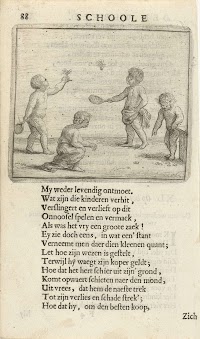 88 SCHOOLE
My weder levendig ontmoet.
Wat zijn die kinderen verhit,
Verslingert en verlieft op dit
Onnoosel spelen en vermack,
Als was het vry een groote zaek!
Ey zie doch eens, in wat een' stant
Verneemt men daer dien kleenen quant;
Let hoe zijn wezen is gestelt,
Terwijl hy waegt zijn koper gelt;
Hoe dat het hert schier uit zijn' grond,
Komt opwaert schieten naer den mond,
Uit vrees, dat hem de naeste trek
Tot zijn verlies en schade strek';
Hoe dat hy, om den besten koop,
Zich